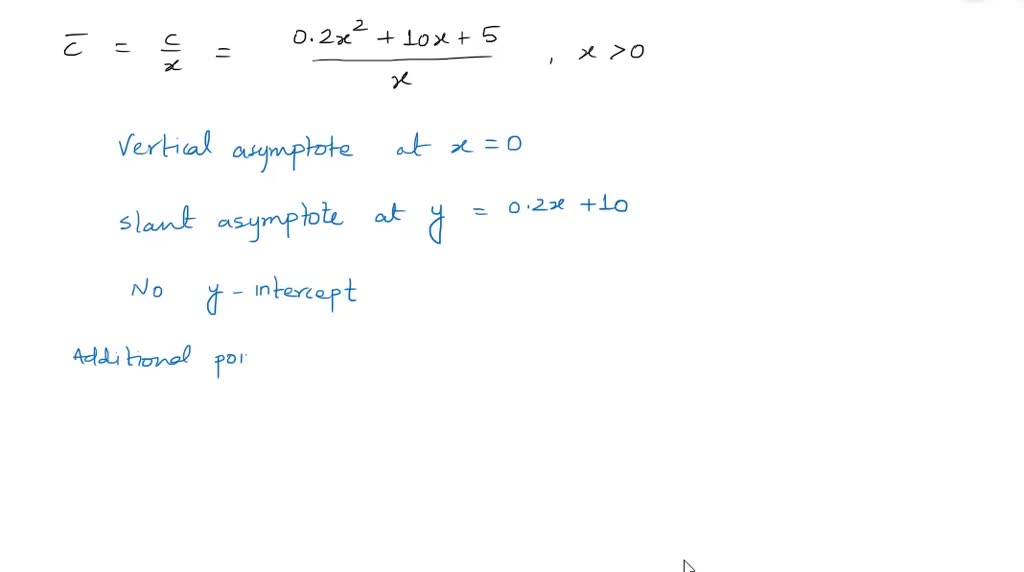 c̄ = c/x = (0.2x² + 10x + 5)/x , x > 0
Vertical asymptote at x = 0
slant asymptote at y = 0.2x + 10
No y - intercept
Additional poi